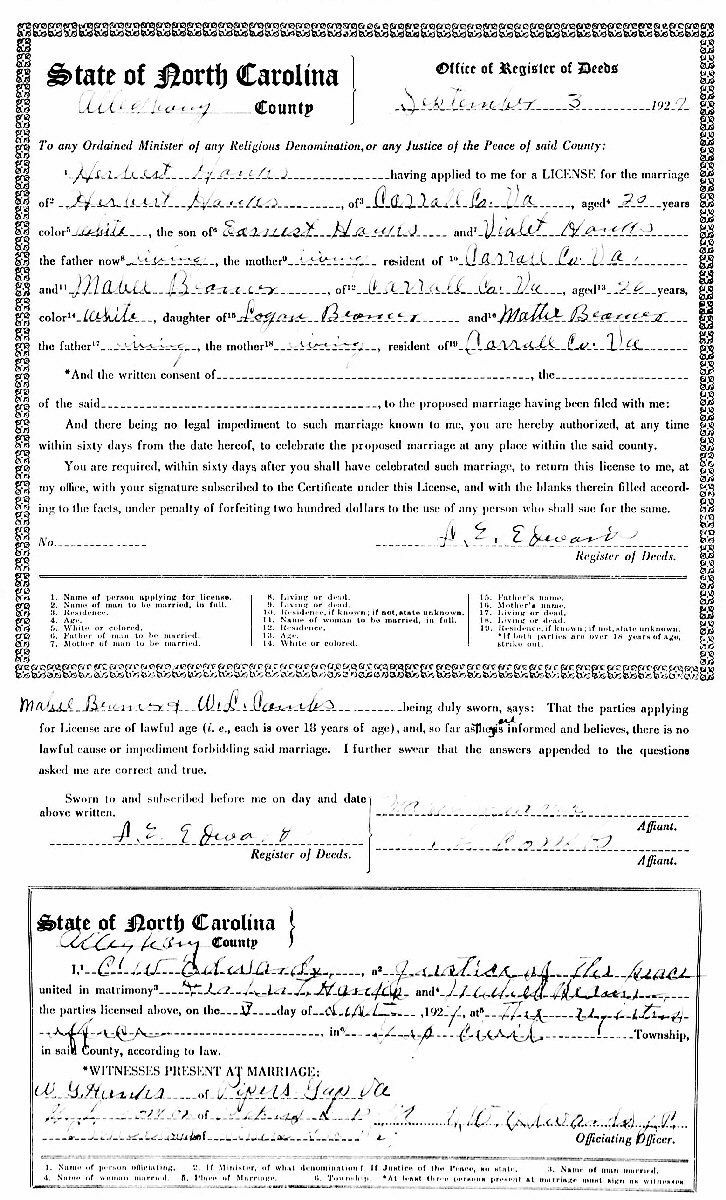 State of North Carolina
Alleghany County
Office of Register of Deeds
September 3 192
To any Ordained Minister of any Religious Denomination, or any Justice of the Peace of said County:
1 Herbert Hawks having applied to me for a LICENSE for the marriage
of2 Herbert Hawks , of3 Carrall Co. Va , aged4 years
color5 White , the son of6 Earnest Hawks and7 Vialet Hawks
the father now8 living , the mother9 living resident of 10 Carrall Co. Va.
and11 Mabel Beamer , of12 Carrall Co. Va , aged13 years,
color14 White , daughter of15 Logan Beamer and16 Mattie Beamer
the father17 living , the mother18 living , resident of19 Carrall Co. Va
*And the written consent of , the
of the said , to the proposed marriage having been filed with me:
And there being no legal impediment to such marriage known to me, you are hereby authorized, at any time
within sixty days from the date hereof, to celebrate the proposed marriage at any place within the said county.
You are required, within sixty days after you shall have celebrated such marriage, to return this license to me, at
my office, with your signature subscribed to the Certificate under this License, and with the blanks therein filled accord-
ing to the facts, under penalty of forfeiting two hundred dollars to the use of any person who shall sue for the same.
No. E. Edwards
Register of Deeds.
1. Name of person applying for license.
2. Name of man to be married, in full.
3. Residence.
4. Age.
5. White or colored.
6. Father of man to be married.
7. Mother of man to be married.
8. Living or dead.
9. Living or dead.
10. Residence, if known; if not, state unknown.
11. Name of woman to be married, in full.
12. Residence.
13. Age.
14. White or colored.
15. Father's name.
16. Mother's name.
17. Living or dead.
18. Living or dead.
19. Residence, if known; if not, state unknown.
*If both parties are over 18 years of age,
strike out.
Mabel Beamer & W. L. Combs being duly sworn, says: That the parties applying
for License are of lawful age (i. e., each is over 18 years of age), and, so far as they are informed and believes, there is no
lawful cause or impediment forbidding said marriage. I further swear that the answers appended to the questions
asked me are correct and true.
Sworn to and subscribed before me on day and date
above written.
E. Edwards
Register of Deeds.
Affiant.
Affiant.
State of North Carolina
Alleghany County
I,1 Edwards, a2 Justice of the peace
united in matrimony3 Herbert Hawks and4 Mabel
the parties licensed above, on the day of , 192 , at5
office , in6 Township,
in said County, according to law.
*WITNESSES PRESENT AT MARRIAGE:
W G Hawks of Pipers Gap Va
of
of
W. Edwards J.P.
Officiating Officer.
1. Name of person officiating. 2. If Minister, of what denomination? If Justice of the Peace, so state. 3. Name of man married.
4. Name of woman married. 5. Place of Marriage. 6. Township *At least three persons present at marriage must sign as witnesses